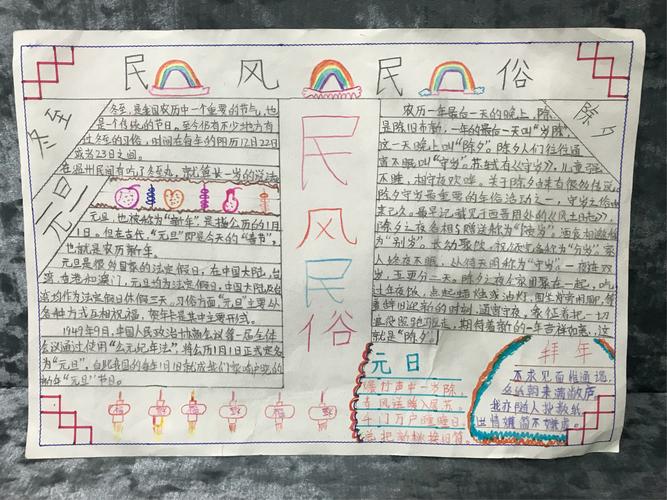 民 风 民 俗
冬至
冬至,是我国农历中一个重要的节气,也
是一个传统的节日。至今仍有不少地方有
过冬至的习俗,时间在每年的阳历12月22日
或者23日之间。
在温州民间有吃了冬至丸,就长一岁的说法
元旦
元旦,也被称为“新年”,是指公历的1月
1日。但在古代,“元旦”即是今天的“春节”,
也就是农历新年。
元旦是很多国家的法定假日,在中国大陆,台
湾,香港和澳门,元旦均为法定假日,中国大陆及台
湾均作为法定假日休假三天。习俗方面“元旦”主要以
各种方式互相祝福,贺年卡是其中主要形式。
1949年9月,中国人民政治协商会议第一届全体
会议通过使用“公元纪年法”,将公历1月1日正式定
为“元旦”,
新年“元旦”节日。
民
风
民
俗
除夕
农历一年最后一天的晚上,除
是除旧布新,一年的最后一天叫“岁除”
这一天晚上叫“除夕”。除夕人们往往通
宵不眠叫“守岁”。苏轼有《守岁》:儿童强
不睡,相守夜欢哗。关于除夕由来有很多传说。
除夕守岁最重要的年俗活动之一,守岁之俗由
来已久。最早记载见于西晋周处的《风土志》:
除夕之夜各相与赠送称为“馈岁”,酒食相邀称
为“别岁”,长幼聚饮,祝颂完备称为“分岁”,家
人终夜不眠,以待天明称为“守岁”。一夜连双
岁,五更分二天。除夕之夜全家团聚在一起,吃
过年夜饭,点起蜡烛或油灯,围坐炉旁闲聊,等
着辞旧迎新的时刻,通宵守夜,象征着把一切
瘟疫照跑驱走,期待着新的一年吉祥如意,这
就是“除夕”。
元日
爆竹声中一岁除,
春风送暖入屠苏。
千门万户曈曈日,
总把新桃换旧符。
拜年
不求见面惟通谒,
名纸朝来满敝庐。
我亦随人投数纸,
世情嫌简不嫌虚。